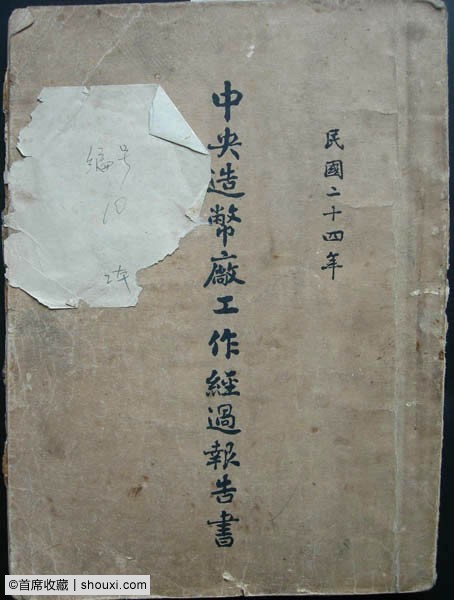 民國二十四年
中央造幣廠工作經過報告書
编号
10
©首席收藏 | shouxi.com